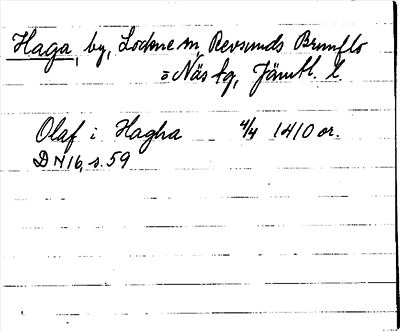 Haga, by, Lockne sn, Revsunds Brunflo
o Näs tg, Jämtl. l.
Olaf i Hagha 4/4 1410 or.
DN 16, s. 59